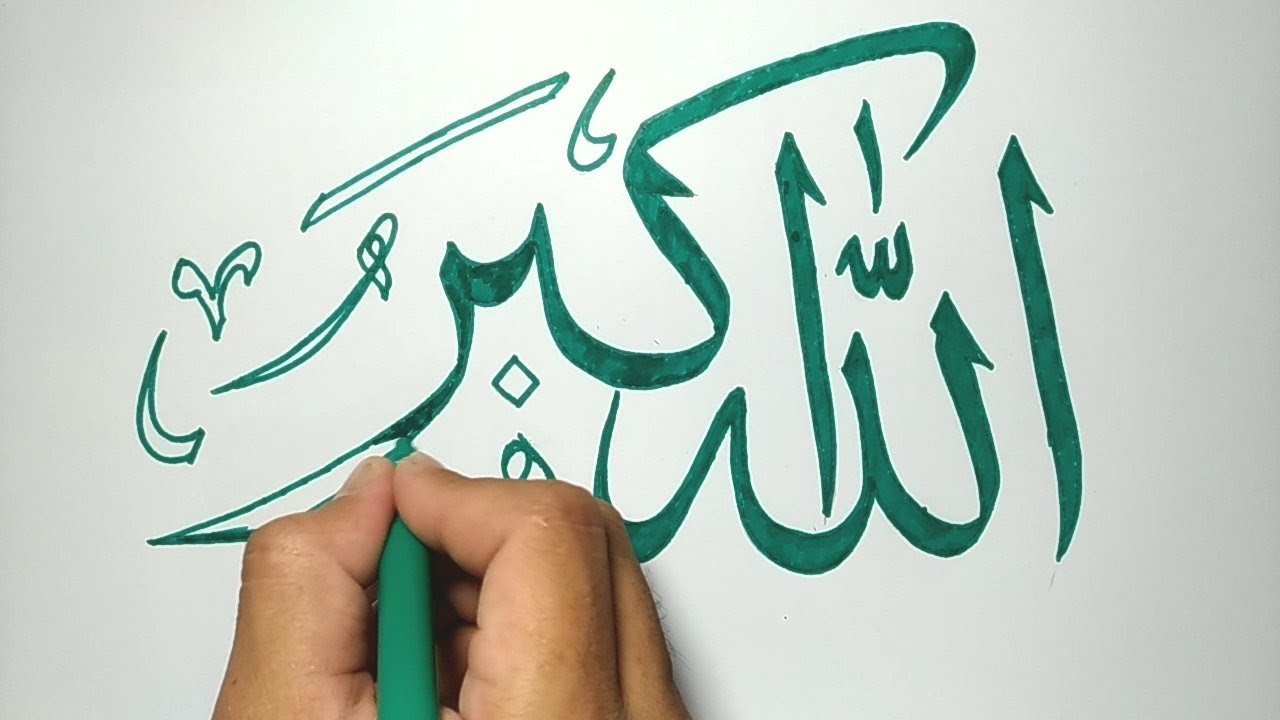 اللّٰه أكبر